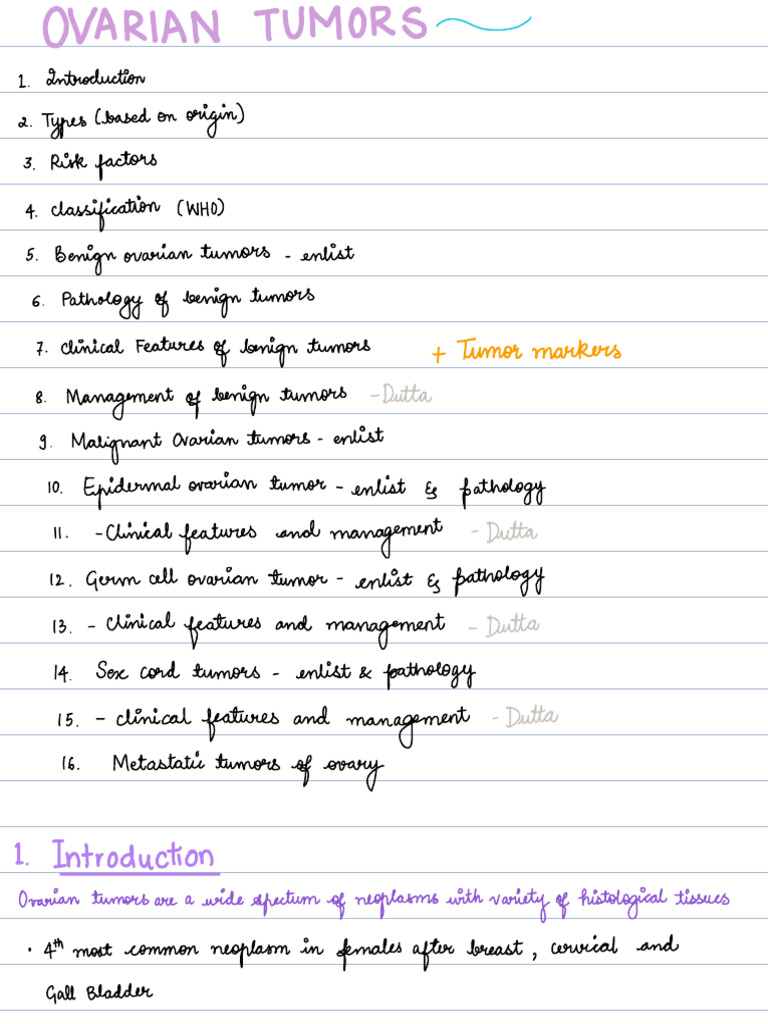 OVARIAN TUMORS
1. Introduction
2. Types (based on origin)
3. Risk factors
4. classification (WHO)
5. Benign ovarian tumors - enlist
6. Pathology of benign tumors
7. Clinical Features of benign tumors + Tumor markers
8. Management of benign tumors - Dutta
9. Malignant Ovarian tumors - enlist
10. Epidermal ovarian tumor - enlist & pathology
11. - Clinical features and management - Dutta
12. Germ cell ovarian tumor - enlist & pathology
13. - Clinical features and management - Dutta
14. Sex cord tumors - enlist & pathology
15. - clinical features and management - Dutta
16. Metastatic tumors of ovary
1. Introduction
Ovarian tumors are a wide spectum of neoplasms with variety of histological tissues
• 4th most common neoplasm in females after breast, cervical and
Gall Bladder